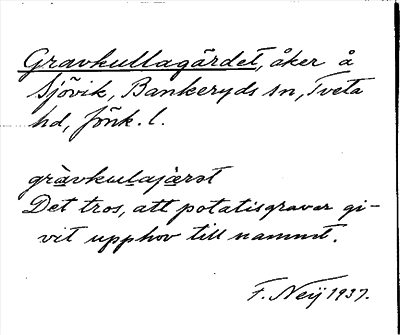 Gravkullagärdet, åker å
Sjövik, Bankeryds sn, Tveta
hd, Jönk. l.
gràvkulajæ̀rət
Det tros, att potatisgravar gi-
vit upphov till namnet.
F. Neij 1937.